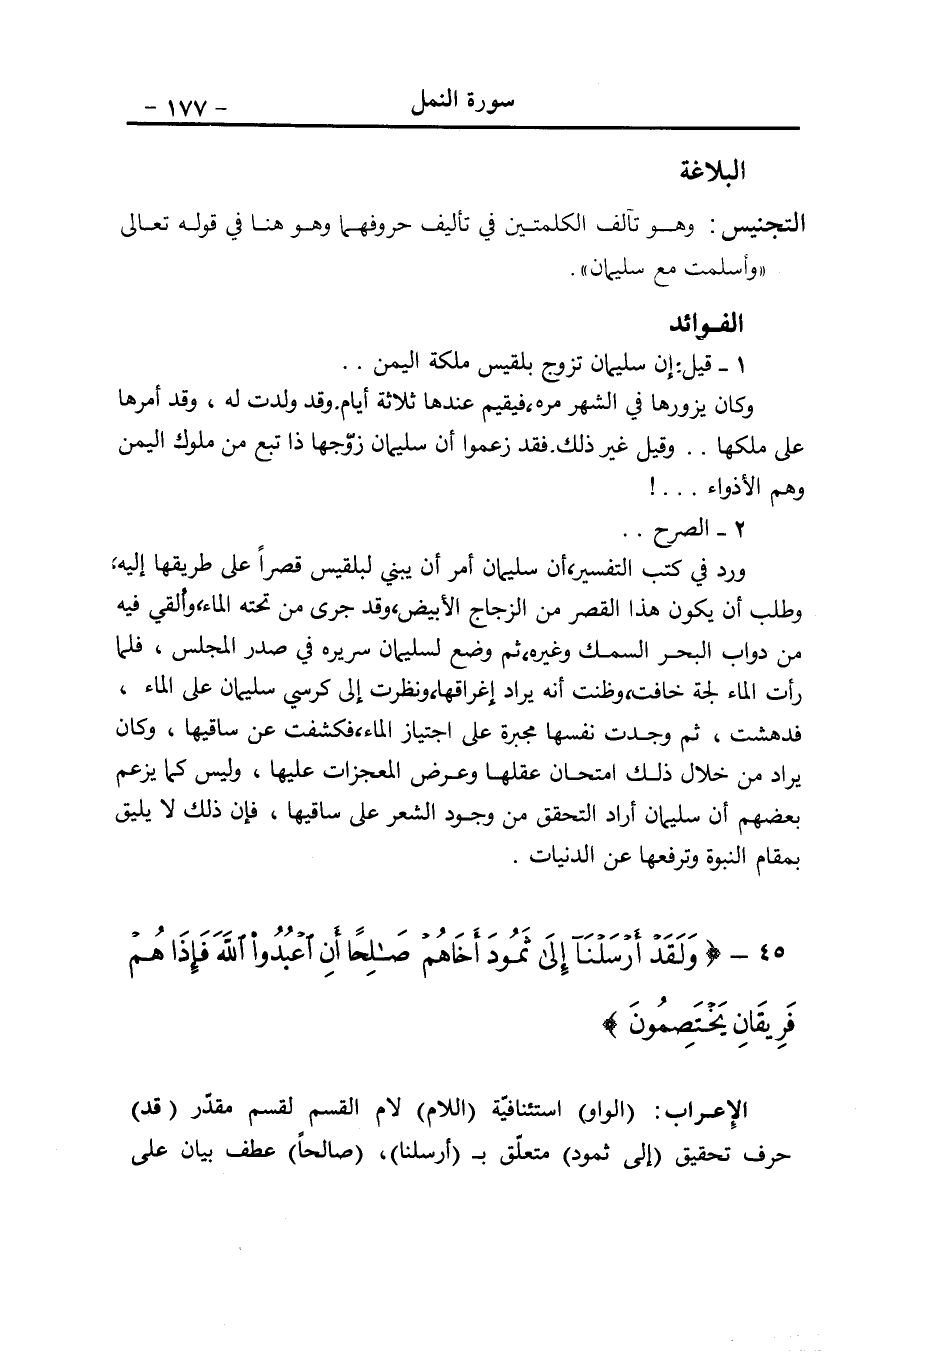 سورة النمل - ١٧٧ -
البلاغة
التجنيس : وهـو تآلف الكلمتـين في تأليف حروفهـا وهـو هنـا في قولـه تعـالى
«وأسلمت مع سليمان» .
الفـوائد
١ ـ قيل:إن سليمان تزوج بلقيس ملكة اليمن . .
وكان يزورها في الشهر مره،فيقيم عندها ثلاثة أيام.وقد ولدت له ، وقد أمرها
على ملكها . . وقيل غير ذلك.فقد زعموا أن سليمان زوّجها ذا تبع من ملوك اليمن
وهم الأذواء . . . !
٢ ـ الصرح . .
ورد في كتب التفسير،أن سليمان أمر أن يبني لبلقيس قصراً على طريقها إليه،
وطلب أن يكون هذا القصر من الزجاج الأبيض،وقد جرى من تحته الماء،وألقي فيه
من دواب البحـر السمـك وغيره،ثم وضع لسليمان سريره في صدر المجلس ، فلما
رأت الماء لجة خافت،وظنت أنه يراد إغراقها،ونظرت إلى كرسي سليمان على الماء ،
فدهشت ، ثم وجـدت نفسها مجبرة على اجتياز الماء،فكشفت عن ساقيها ، وكان
يراد من خلال ذلـك امتحـان عقلهـا وعـرض المعجزات عليها ، وليس كما يزعم
بعضهم أن سليمان أراد التحقق من وجـود الشعر على ساقيها ، فإن ذلك لا يليق
بمقام النبوة وترفعها عن الدنيات .
٤٥ – ﴿ وَلَقَدْ أَرْسَلْنَآ إِلَىٰ ثَمُودَ أَخَاهُمْ صَـٰلِحًا أَنِ ٱعْبُدُواْ ٱللَّهَ فَإِذَا هُمْ
فَرِيقَانِ يَخْتَصِمُونَ ﴾
الإعـراب : (الواو) استئنافيّة (اللام) لام القسم لقسم مقدّر (قد)
حرف تحقيق (إلى ثمود) متعلّق بـ (أرسلنا)، (صالحاً) عطف بيان على